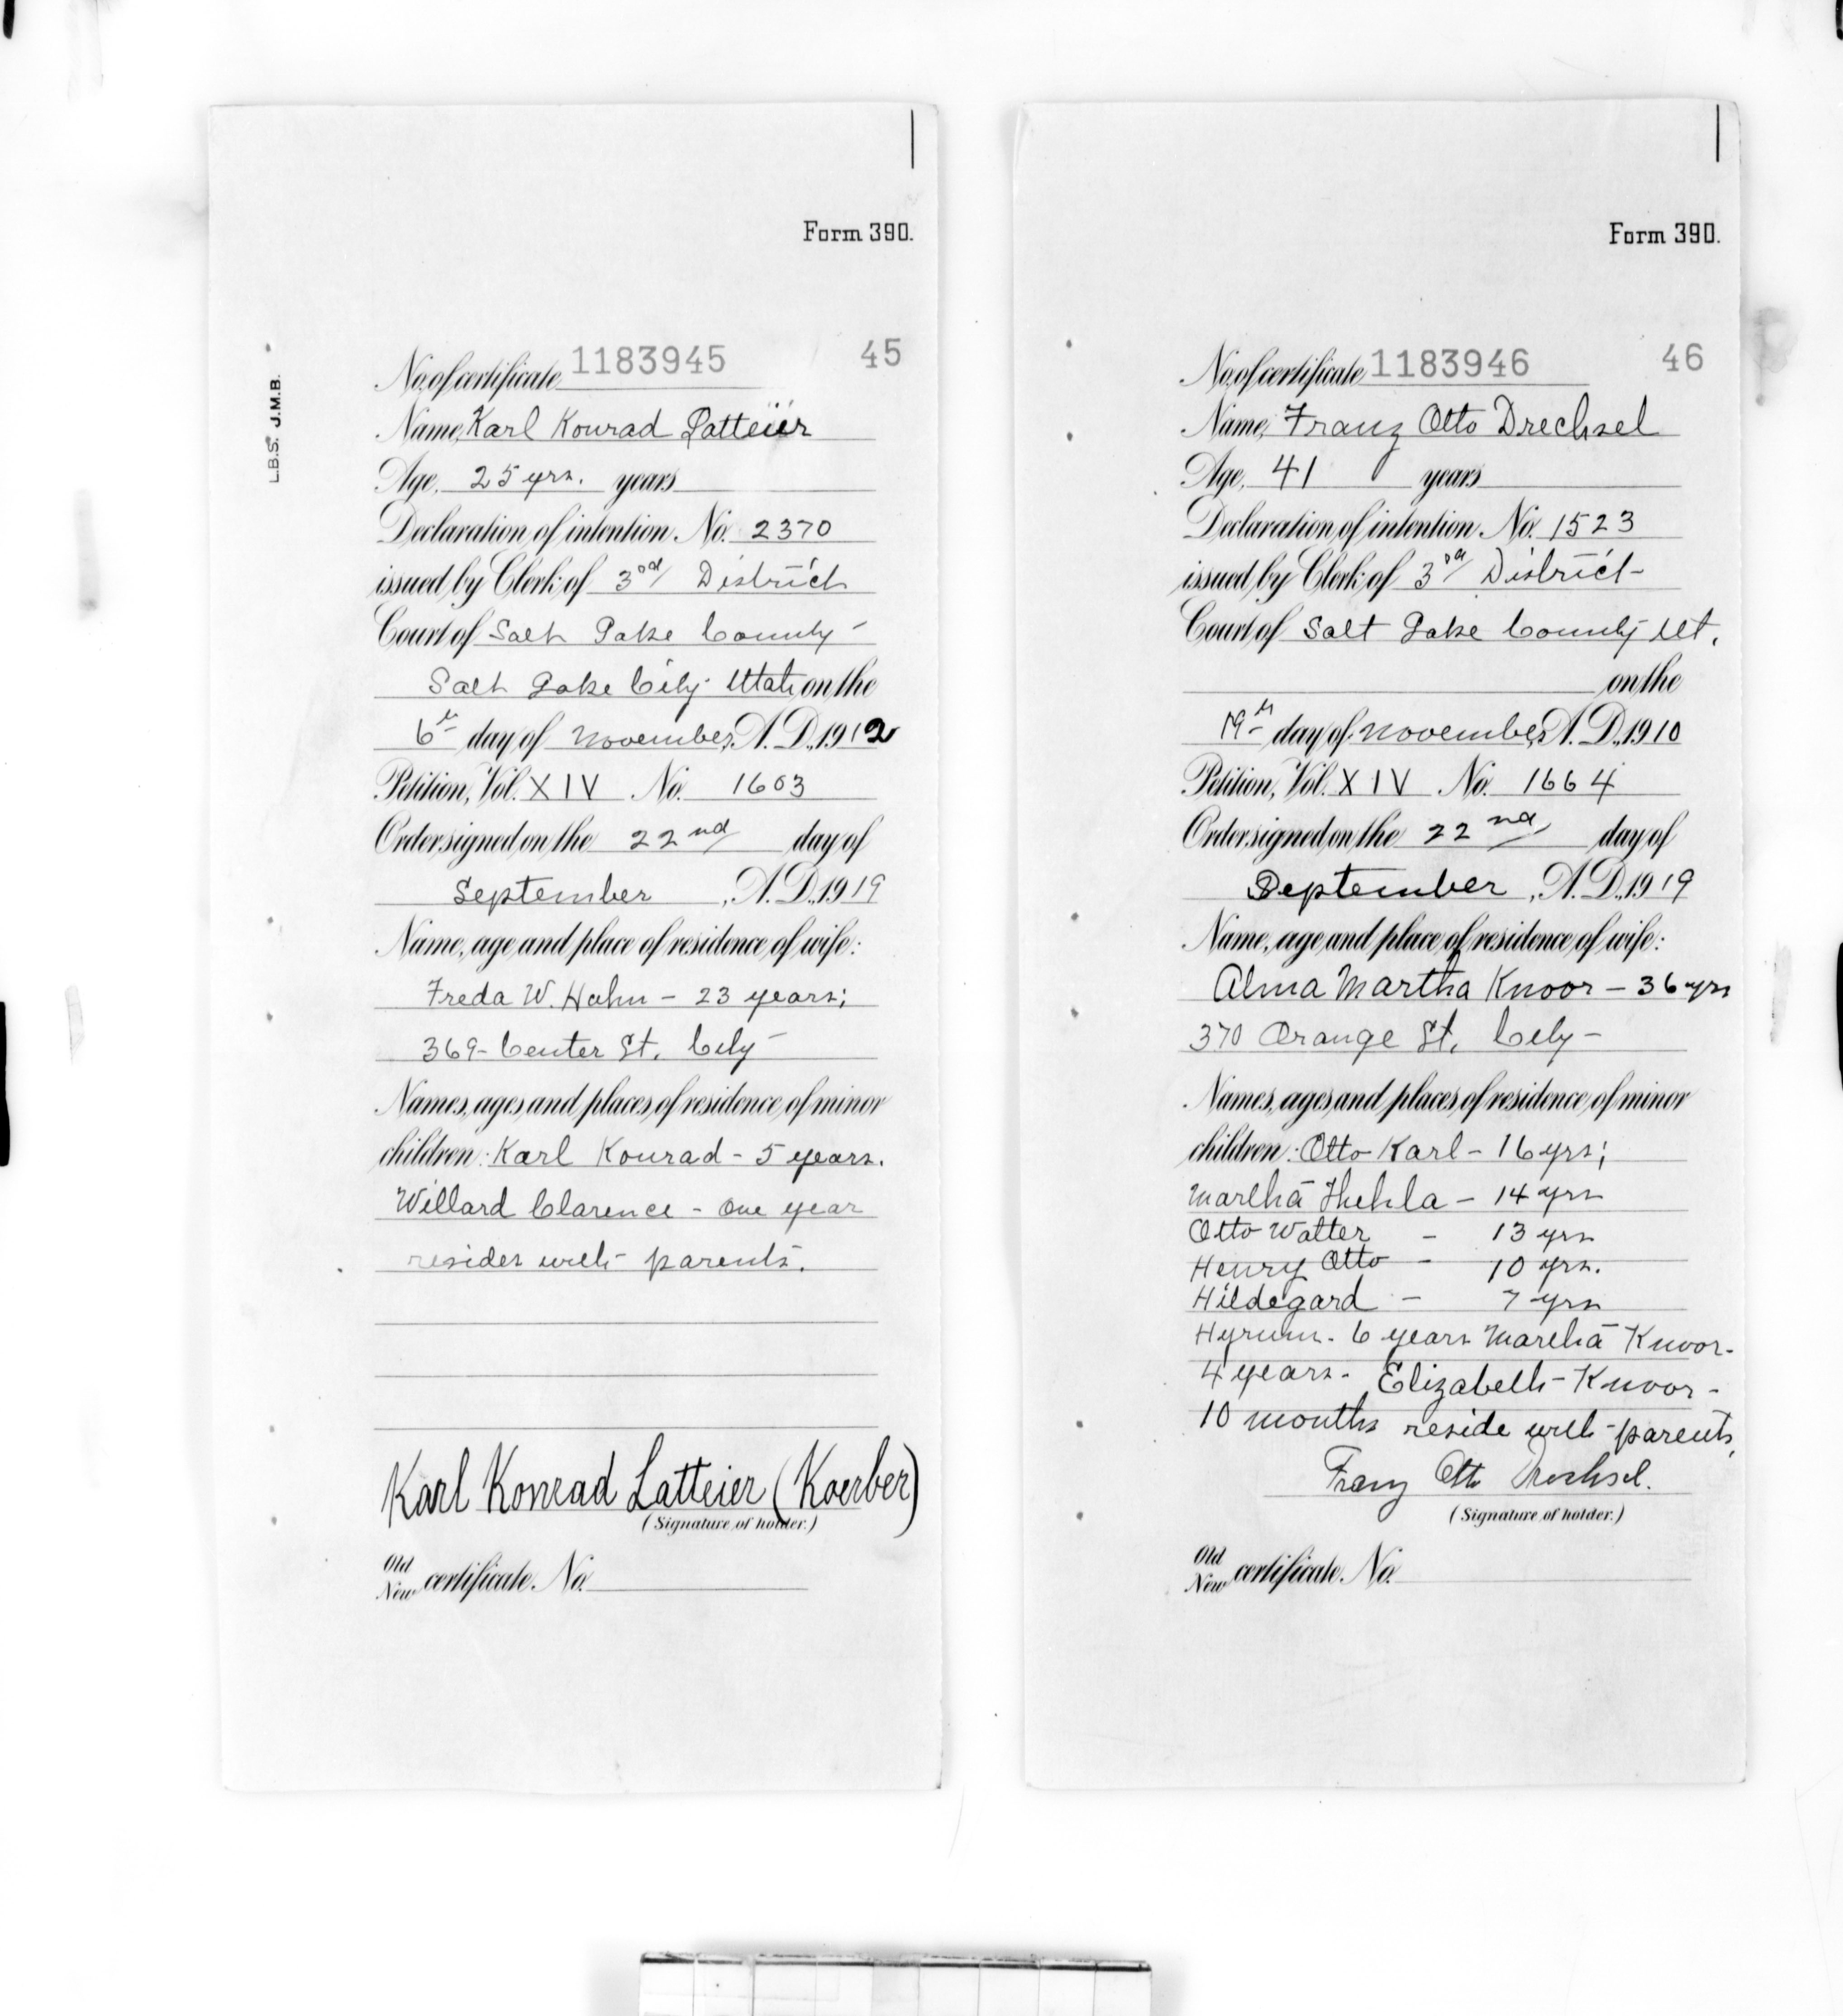 Form 390.
L.B.S. J.M.B.
No. of certificate 1183945 45
Name, Karl Konrad Latteier
Age, 25 yrs. years
Declaration of intention. No. 2370
issued by Clerk of 3rd District
Court of Salt Lake County
Salt Lake City Utah on the
6th day of November, A. D., 1912
Petition, Vol. XIV No. 1603
Order signed on the 22nd day of
September, A. D., 1919
Name, age and place of residence of wife:
Freda W. Hahn - 23 years;
369 - Center St. City
Names, ages and places of residence of minor
children: Karl Konrad - 5 years.
Willard Clarence - One year
resides with parents.
Karl Konrad Latteier (Koerber)
(Signature of holder.)
Old
New certificate. No.
Form 390.
No. of certificate 1183946 46
Name, Franz Otto Drechsel
Age, 41 years
Declaration of intention. No. 1523
issued by Clerk of 3rd District
Court of Salt Lake County Ut.
on the
19th day of November, A. D., 1910
Petition, Vol. XIV No. 1664
Order signed on the 22nd day of
September, A. D., 1919
Name, age and place of residence of wife:
Alma Martha Knoor - 36 yrs
370 Orange St. City -
Names, ages and places of residence of minor
children: Otto Karl - 16 yrs;
Martha Thehla - 14 yrs
Otto Walter - 13 yrs
Henry Otto - 10 yrs.
Hildegard - 7 yrs
Hyrum - 6 years Martha Knoor -
4 years - Elizabeth Knoor -
10 months reside with parents,
Franz Otto Drechsel.
(Signature of holder.)
Old
New certificate. No.